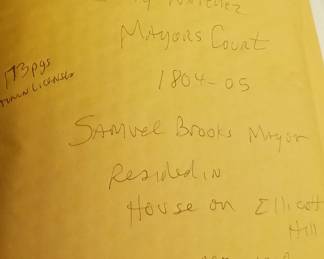 Natchez
Mayors Court
1804-05
173 pgs
Samuel Brooks Mayor
Resided in
House on Ellicott
Hill